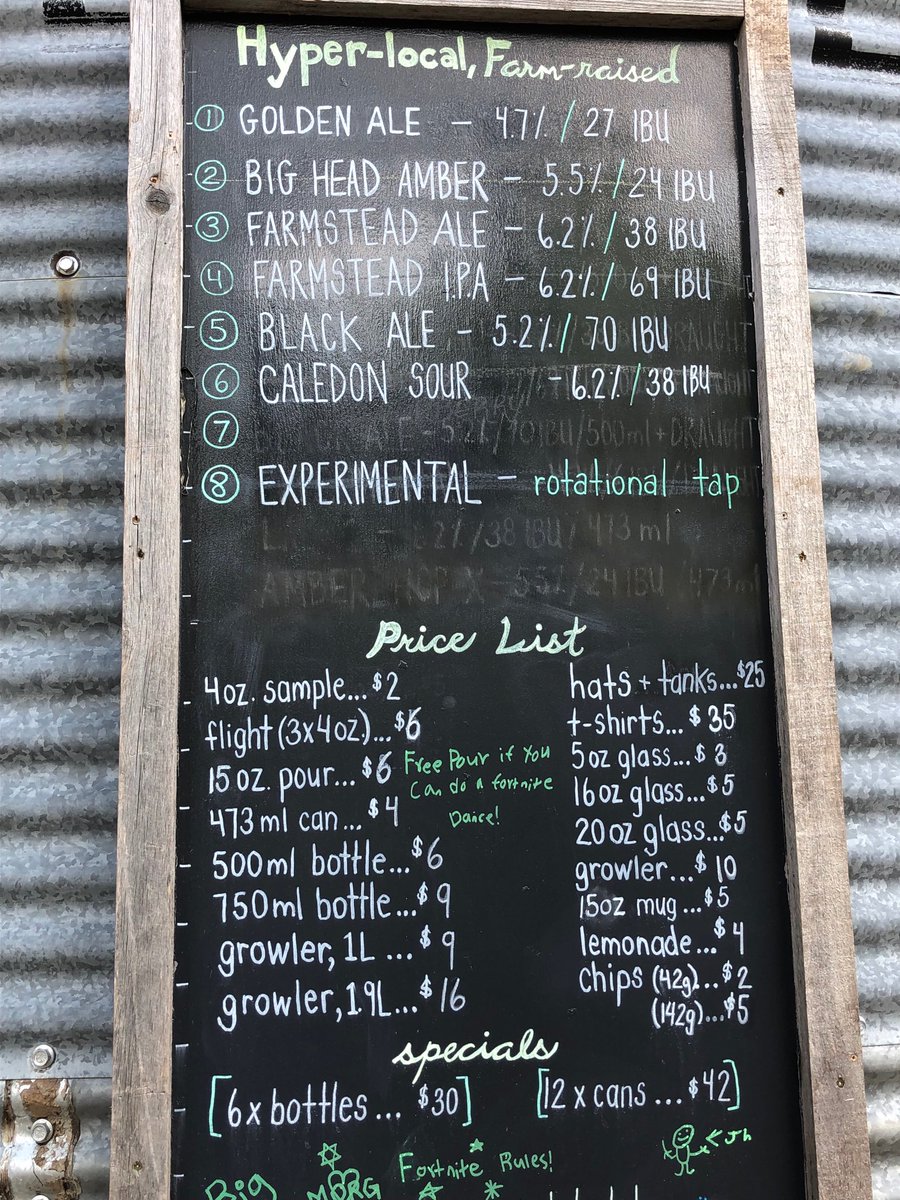 Hyper-local, Farm-raised
1 GOLDEN ALE - 4.7% / 27 IBU
2 BIG HEAD AMBER - 5.5% / 24 IBU
3 FARMSTEAD ALE - 6.2% / 38 IBU
4 FARMSTEAD I.P.A - 6.2% / 69 IBU
5 BLACK ALE - 5.2% / 70 IBU
6 CALEDON SOUR - 6.2% / 38 IBU
7 ALE - 5.2% / 70 IBU / 500ml + DRAUGHT
8 EXPERIMENTAL - rotational tap
/ 38 IBU / 473 ml
AMBER - 5.5% / 24 IBU / 473ml
Price List
4oz. sample...$2
flight (3x4oz)...$6
15oz. pour...$6
Free Pour if You
Can do a fortnite
Dance!
473ml can...$4
500ml bottle...$6
750ml bottle...$9
growler, 1L...$9
growler, 1.9L...$16
hats + tanks...$25
t-shirts...$35
5oz glass...$3
16oz glass...$5
20oz glass...$5
growler...$10
15oz mug...$5
lemonade...$4
chips (42g)...$2
(142g)...$5
specials
[6 x bottles... $30] [12 x cans...$42]
Fortnite Rules!
Big MORG